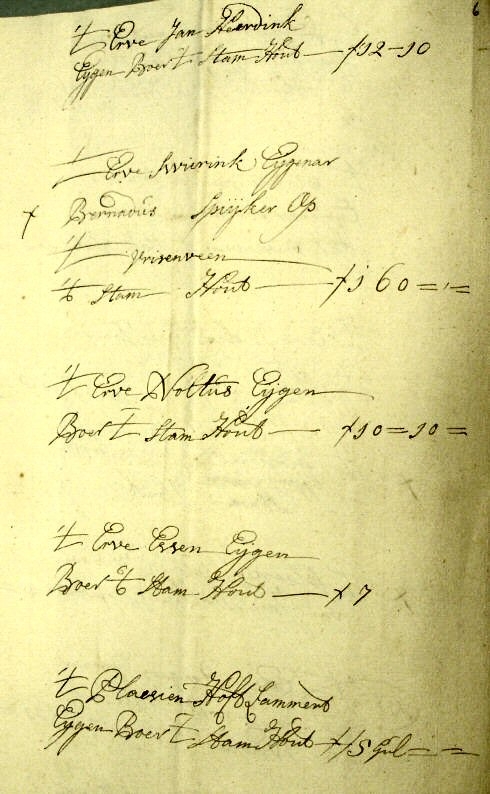 6
't Erve Jan Heerdink
Eygen Boer 't Stam Hout — ƒ12-10
't Erve Swierink Eygenar
Bernadus Spijker Op
't Vrisenveen
't Stam Hout — ƒ160=,=
't Erve Noltus Eygen
Boer 't Stam Hout — ƒ10=10=
't Erve Essen Eygen
Boer 't Stam Hout — ƒ7
't Plaesien Hoft Lammert
Eygen Boer 't Stam Hout ƒ15 Gul= =